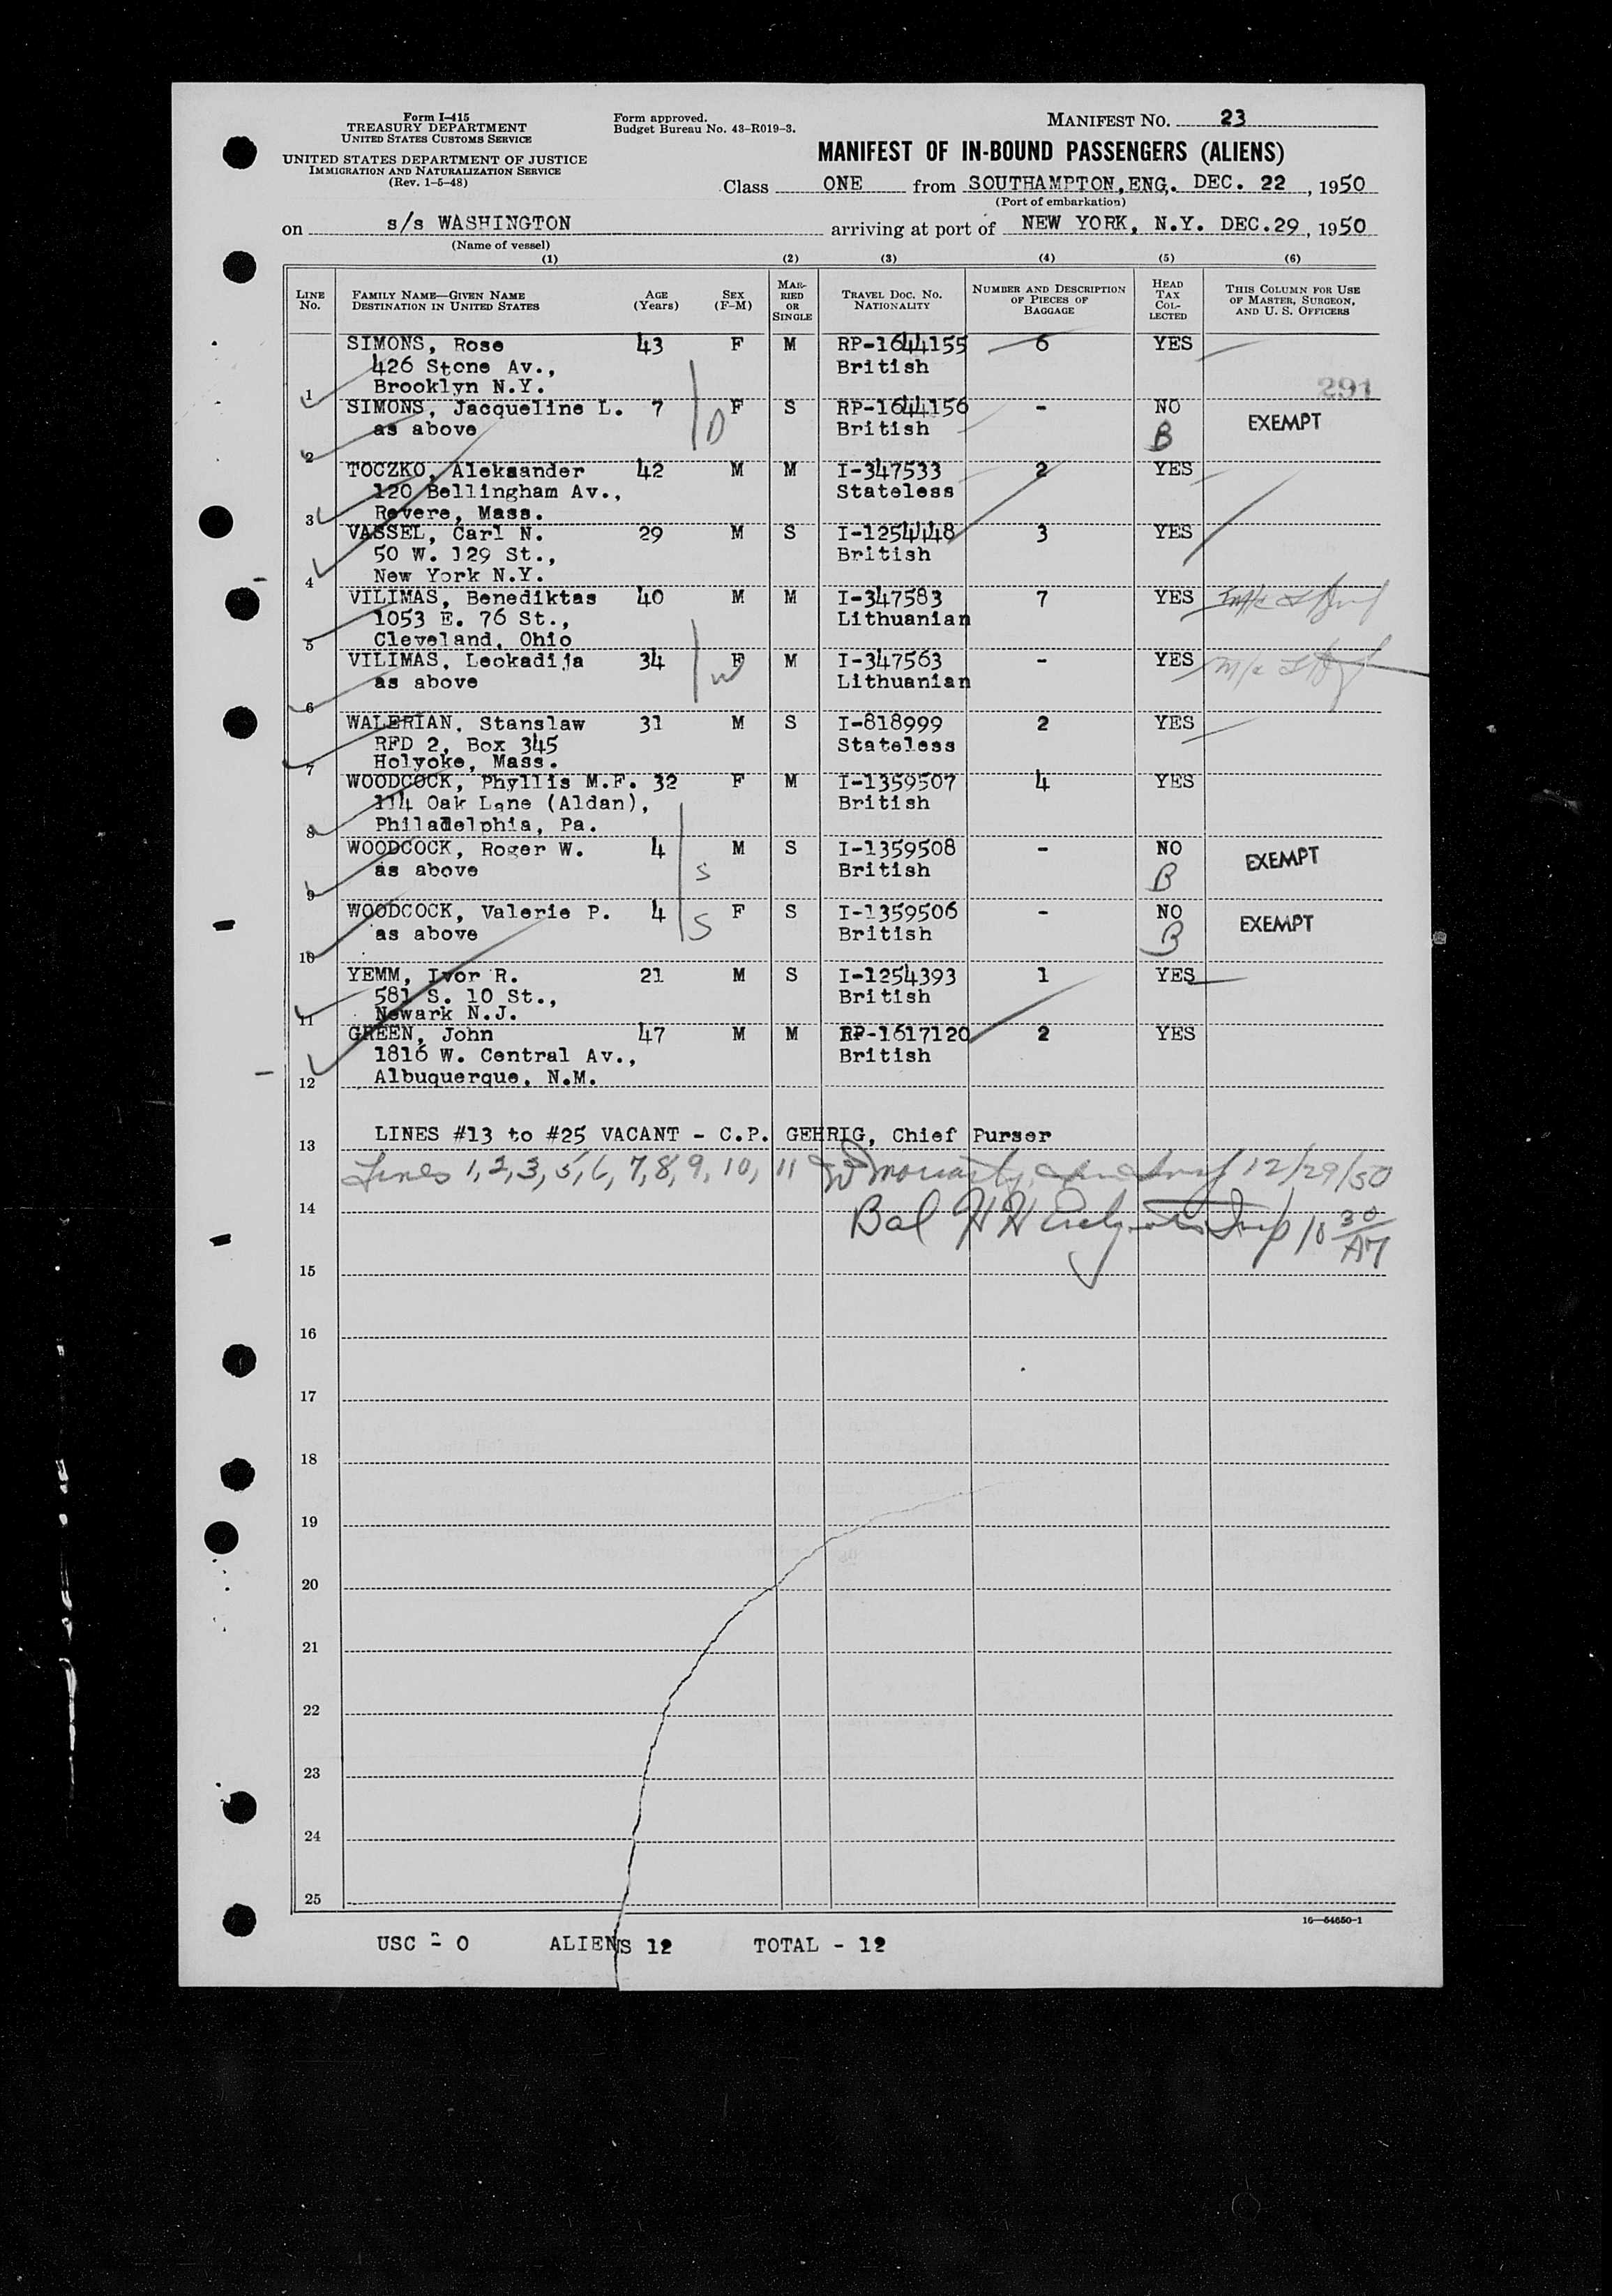 Form I-415
TREASURY DEPARTMENT
UNITED STATES CUSTOMS SERVICE
UNITED STATES DEPARTMENT OF JUSTICE
IMMIGRATION AND NATURALIZATION SERVICE
(Rev. 1-5-48)
Form approved.
Budget Bureau No. 43-R019-3.
MANIFEST NO. 23
MANIFEST OF IN-BOUND PASSENGERS (ALIENS)
Class ONE from SOUTHAMPTON, ENG. DEC. 22, 1950
(Port of embarkation)
on s/s WASHINGTON arriving at port of NEW YORK, N.Y. DEC. 29, 1950
(Name of vessel)
(1) (2) (3) (4) (5) (6)
LINE NO. FAMILY NAME—GIVEN NAME DESTINATION IN UNITED STATES AGE (Years) SEX (F-M) MARRIED OR SINGLE TRAVEL DOC. NO. NATIONALITY NUMBER AND DESCRIPTION OF PIECES OF BAGGAGE HEAD TAX COLLECTED THIS COLUMN FOR USE OF MASTER, SURGEON, AND U. S. OFFICERS
SIMONS, Rose 43 F M RP-1644155 6 YES
426 Stone Av., British
1 Brooklyn N.Y. 291
SIMONS, Jacqueline L. 7 F S RP-1644156 - NO EXEMPT
as above D British B
2
TOCZKO, Aleksander 42 M M I-347533 2 YES
120 Bellingham Av., Stateless
3 Revere, Mass.
VASSEL, Carl N. 29 M S I-1254448 3 YES
50 W. 129 St., British
4 New York N.Y.
VILIMAS, Benediktas 40 M M I-347583 7 YES
1053 E. 76 St., Lithuanian
5 Cleveland, Ohio
VILIMAS, Leokadija 34 F M I-347563 - YES
as above W Lithuanian
6
WALERIAN, Stanslaw 31 M S I-818999 2 YES
RFD 2, Box 345 Stateless
7 Holyoke, Mass.
WOODCOCK, Phyllis M.F. 32 F M I-1359507 4 YES
114 Oak Lane (Aldan), British
8 Philadelphia, Pa.
WOODCOCK, Roger W. 4 M S I-1359508 - NO EXEMPT
as above S British B
9
WOODCOCK, Valerie P. 4 F S I-1359506 - NO EXEMPT
as above S British B
10
YEMM, Ivor R. 21 M S I-1254393 1 YES
581 S. 10 St., British
11 Newark N.J.
GREEN, John 47 M M RP-1617120 2 YES
1816 W. Central Av., British
12 Albuquerque, N.M.
13 LINES #13 to #25 VACANT - C.P. GEHRIG, Chief Purser
Lines 1, 2, 3, 5, 6, 7, 8, 9, 10, 11 Moriarty 12/29/50
14 Bal Insp 10 30
15
16
17
18
19
20
21
22
23
24
25
16—54650-1
USC - 0 ALIENS 12 TOTAL - 12